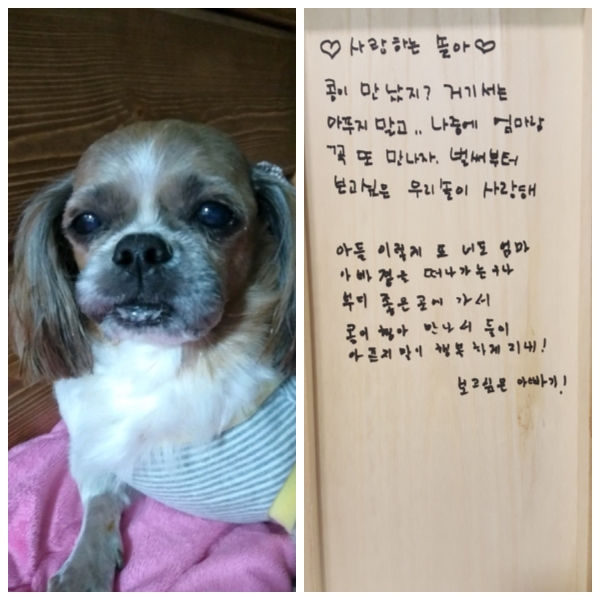 ♡사랑하는 돌아♡
콩이 만났지? 거기서는
아푸지 말고.. 나중에 엄마랑
꼭 또 만나자. 벌써부터
보고싶은 우리돌이 사랑해
아들 이렇게 또 너도 엄마
아빠 곁을 떠나가는구나
부디 좋은곳에 가서
콩이 형아 만나서 둘이
아픈지말이 행복하게 지내!
보고싶은 아빠가!